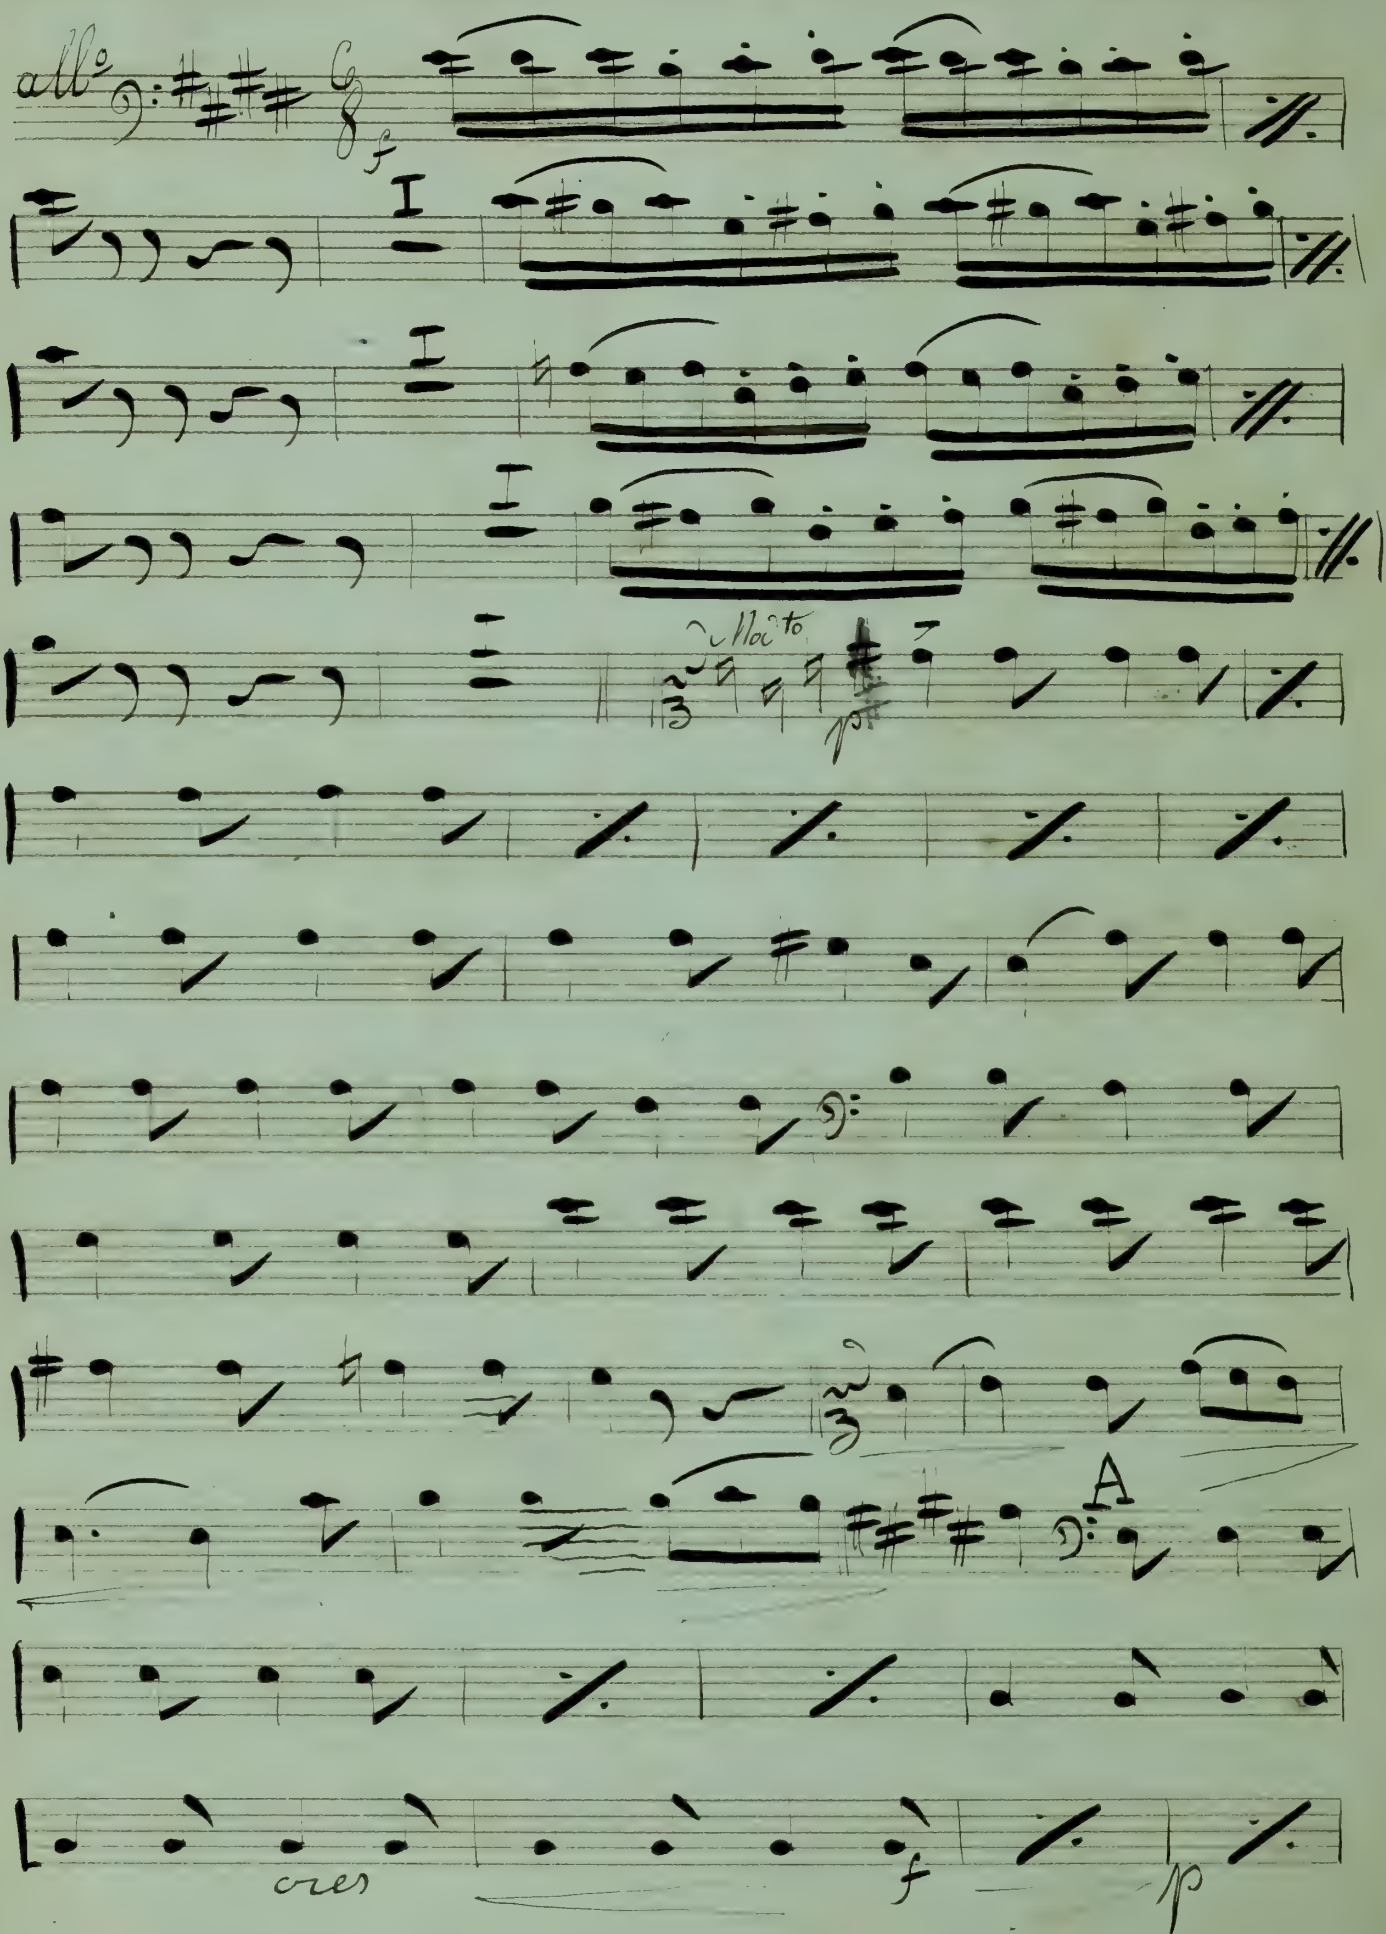 allo 6 8
f
I
I
I
Mod to
p
A
cres f p